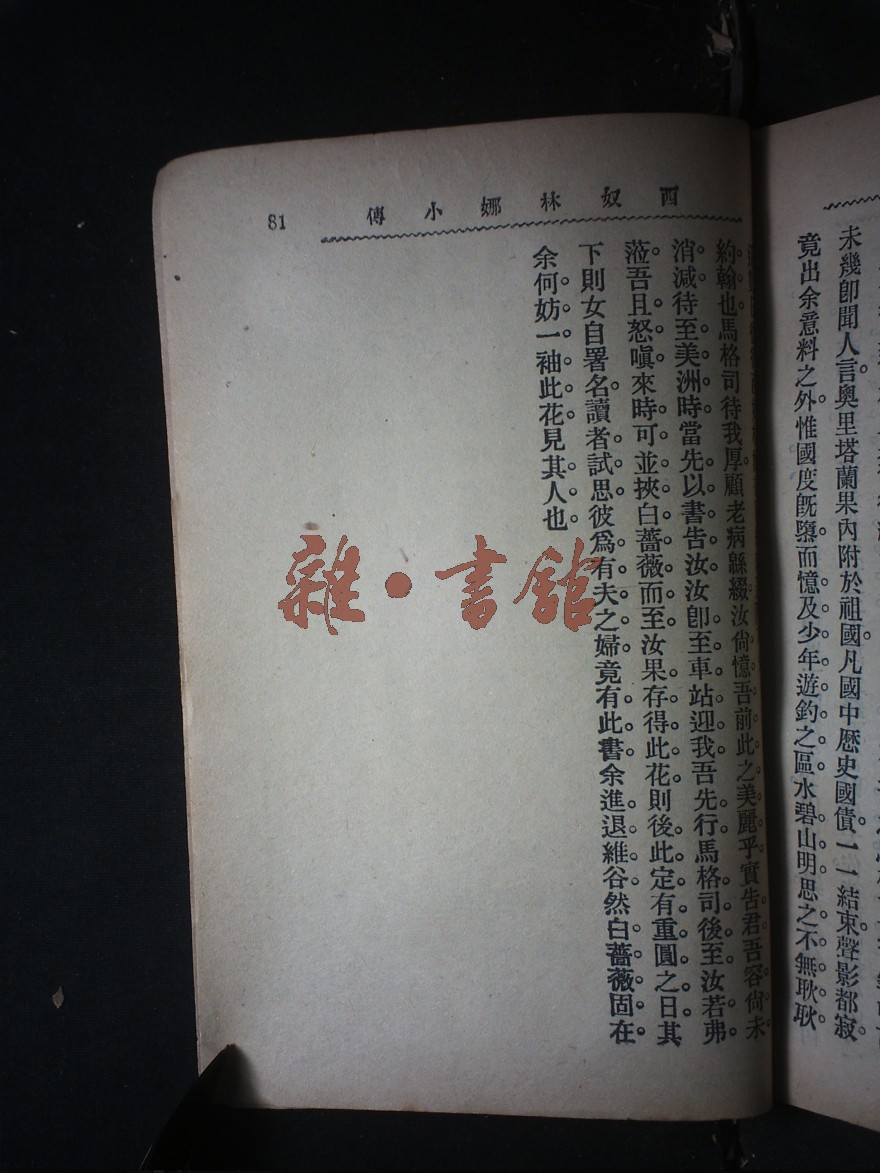 未幾卽聞人言。奧里塔蘭果內附於祖國。凡國中歷史國債。一一結束。聲影都寂。
竟出余意料之外。惟國度旣隳。而憶及少年遊釣之區。水碧山明。思之不無耿耿。
西奴林娜小傳
81
約翰也。馬格司待我厚。顧老病緜綴。汝尙憶吾前此之美麗乎。實吿君。吾容尙未
消減。待至美洲時。當先以書吿汝。汝卽至車站迎我。吾先行。馬格司後至。汝若弗
蒞。吾且怒嗔。來時可並挾白薔薇而至。汝果存得此花。則後此定有重圓之日。其
下則女自署名。讀者試思。彼爲有夫之婦。竟有此書。余進退維谷。然白薔薇固在。
余何妨一袖此花。見其人也。
雜·書館